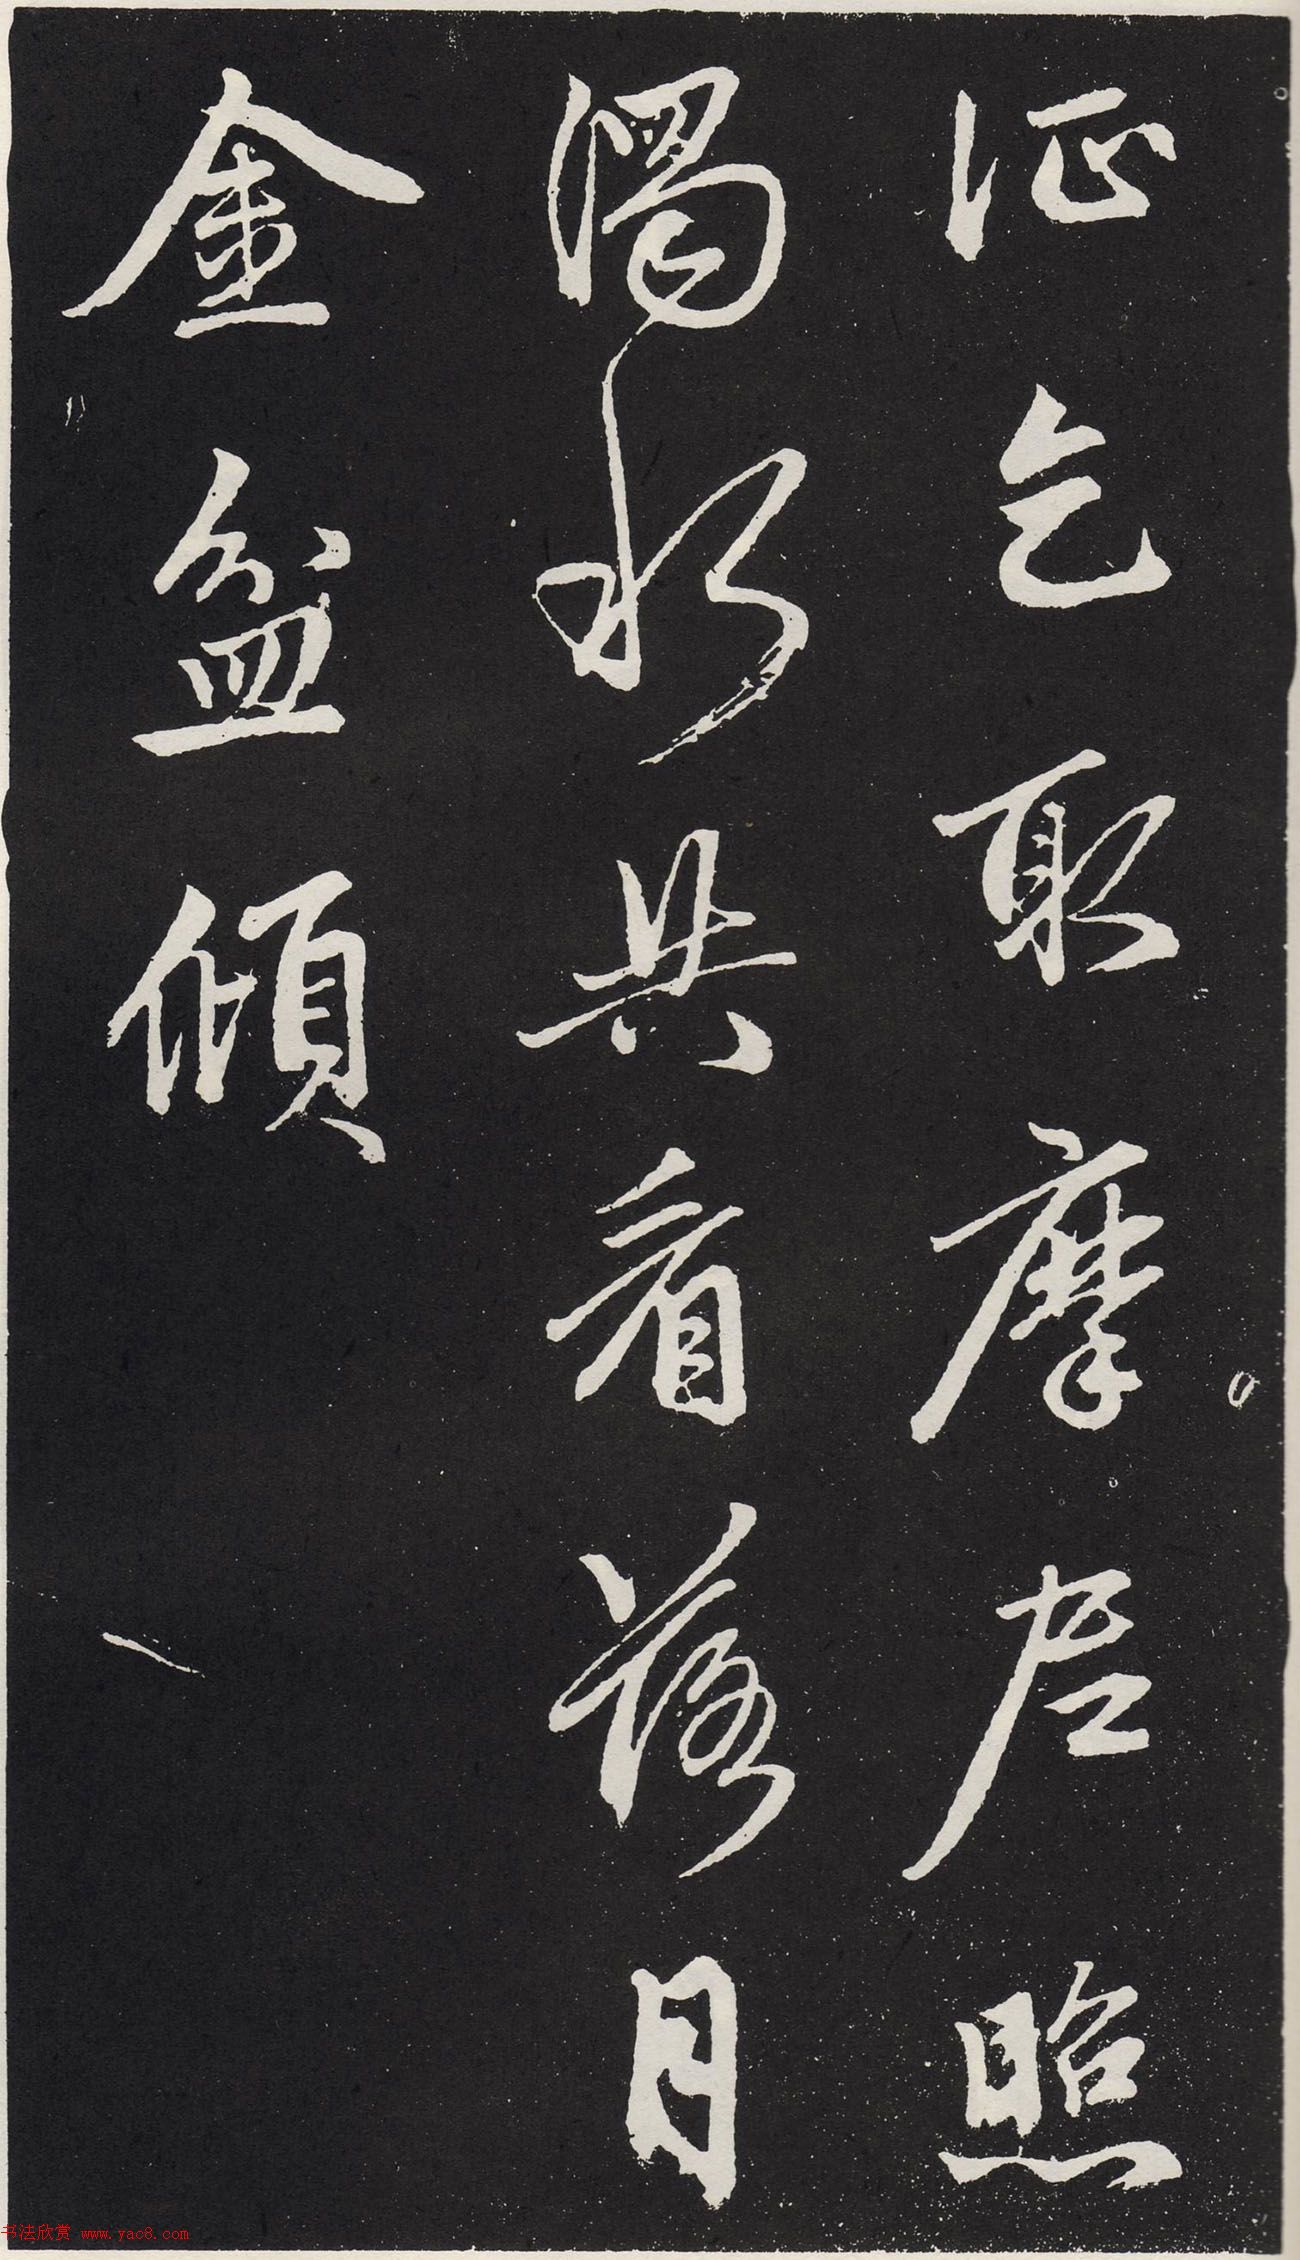 泥乞取摩尼照
濁水共看落月
金盆傾
书法欣赏 www.yac8.com